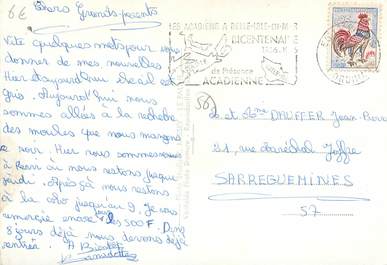 6€
Chers Grands-parents
Vite quelques mots pour vous
donner de mes nouvelles
Hier et aujourd'hui le ciel est
gris. Aujourd'hui nous
sommes allés à la recherche
des moules que nous mangeons
ce soir. Hier nous sommes
à où nous restons jusqu'à
jeudi. Après ça nous restons
à la côte jusqu'au 9. Je vous
remercie encore pour les 500F. Dans
8 jours déjà nous devons déjà
rentrer. A Bientôt
Bernadette
LES ACADIENS A BELLE-ILE-EN-MER
BICENTENAIRE
de Présence
ACADIENNE
56
M. et Mme DAUFFER Jean-Pierre
21, rue Maréchal Joffre
SARREGUEMINES
57